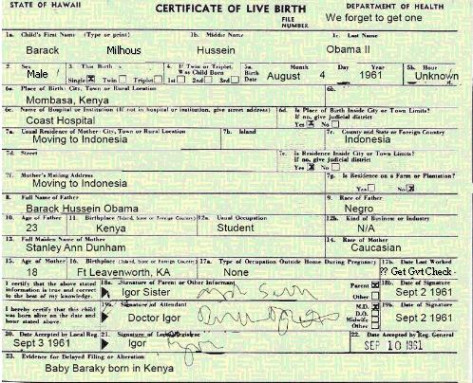 STATE OF HAWAII CERTIFICATE OF LIVE BIRTH DEPARTMENT OF HEALTH
FILE NUMBER We forget to get one
1a. Child's First Name (Type or print) 1b. Middle Name 1c. Last Name
Barack Milhous Hussein Obama II
2. Sex 3. This Birth 4. If Twin or Triplet, Was Child Born 5a. Birth Date Month Day Year 5b. Hour
Male Single Twin Triplet 1st 2nd 3rd August 4 1961 Unknown
6a. Place of Birth: City, Town or Rural Location 6b.
Mombasa, Kenya
6c. Name of Hospital or Institution (If not in hospital or institution, give street address) 6d. Is Place of Birth Inside City or Town Limits? If no, give judicial district
Coast Hospital Yes No
7a. Usual Residence of Mother: City, Town or Rural Location 7b. Island 7c. County and State or Foreign Country
Moving to Indonesia Indonesia
7d. Street 7e. Is Residence Inside City or Town Limits? If no, give judicial district
Yes No
7f. Mother's Mailing Address 7g. Is Residence on a Farm or Plantation?
Moving to Indonesia Yes No
8. Full Name of Father 9. Race of Father
Barack Hussein Obama Negro
10. Age of Father 11. Birthplace (Island, State or Foreign Country) 12a. Usual Occupation 12b. Kind of Business or Industry
23 Kenya Student N/A
13. Full Maiden Name of Mother 14. Race of Mother
Stanley Ann Dunham Caucasian
15. Age of Mother 16. Birthplace (Island, State or Foreign Country) 17a. Type of Occupation Outside Home During Pregnancy 17b. Date Last Worked
18 Ft Leavenworth, KA None ?? Get Gvt Check
I certify that the above stated information is true and correct to the best of my knowledge. 18a. Signature of Parent or Other Informant Parent Other 18b. Date of Signature
Igor Sister Sept 2 1961
I hereby certify that this child was born alive on the date and hour stated above. 19a. Signature of Attendant M.D. D.O. Midwife Other 19b. Date of Signature
Doctor Igor Sept 2 1961
20. Date Accepted by Local Reg. 21. Signature of Local Registrar 22. Date Accepted by Reg. General
Sept 3 1961 Igor SEP 10 1961
23. Evidence for Delayed Filing or Alteration
Baby Baraky born in Kenya